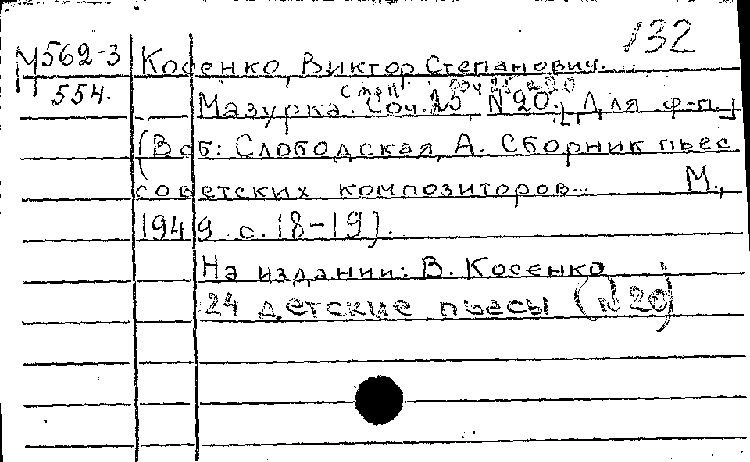 132
М 562-3 Косенко, Виктор Степанович.
554.
Мазурка. Соч. 25, N 20. [Для ф-п.]
(В сб: Слободская, А. Сборник пьес
советских композиторов... М.,
1949. с. 18-19).
На издании: В. Косенко
24 детские пьесы (N 20)